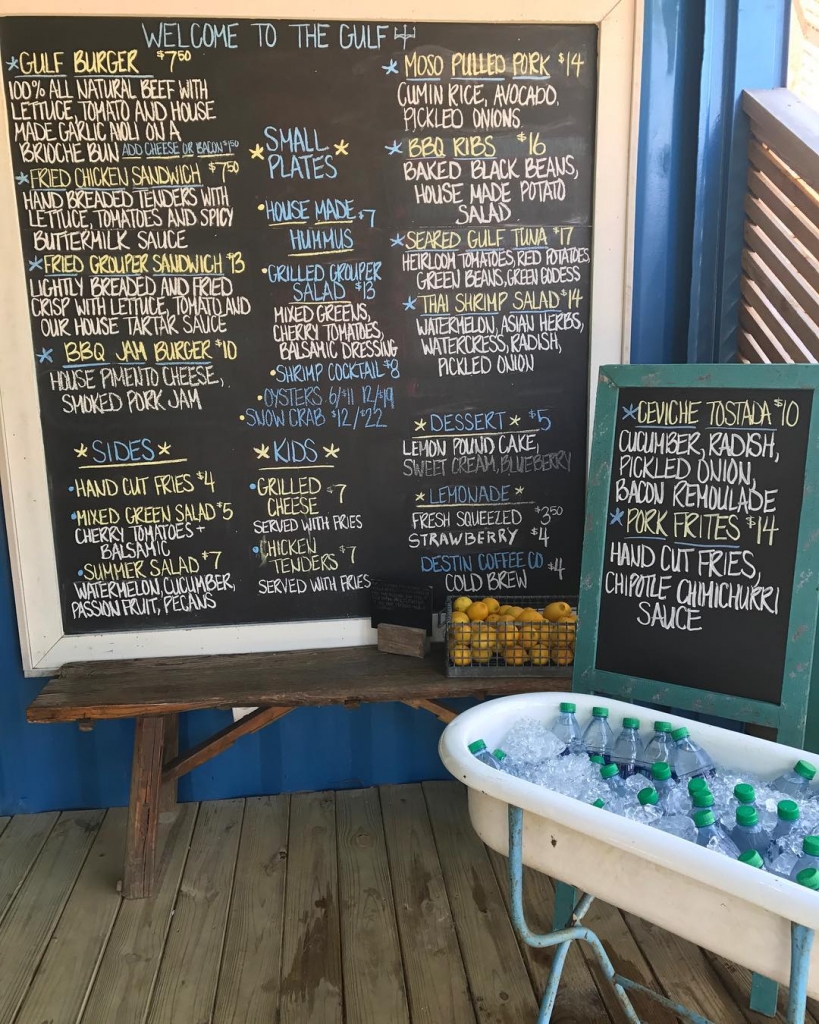 WELCOME TO THE GULF
GULF BURGER $7.50
100% ALL NATURAL BEEF WITH
LETTUCE, TOMATO AND HOUSE
MADE GARLIC AIOLI ON A
BRIOCHE BUN ADD CHEESE OR BACON $1.50
FRIED CHICKEN SANDWICH $7.50
HAND BREADED TENDERS WITH
LETTUCE, TOMATOES AND SPICY
BUTTERMILK SAUCE
FRIED GROUPER SANDWICH $13
LIGHTLY BREADED AND FRIED
CRISP WITH LETTUCE, TOMATO AND
OUR HOUSE TARTAR SAUCE
BBQ JAM BURGER $10
HOUSE PIMENTO CHEESE,
SMOKED PORK JAM
SIDES
HAND CUT FRIES $4
MIXED GREEN SALAD $5
CHERRY TOMATOES +
BALSAMIC
SUMMER SALAD $7
WATERMELON, CUCUMBER,
PASSION FRUIT, PECANS
SMALL
PLATES
HOUSE MADE $7
HUMMUS
GRILLED GROUPER
SALAD $13
MIXED GREENS,
CHERRY TOMATOES,
BALSAMIC DRESSING
SHRIMP COCKTAIL $8
OYSTERS 6/$11 12/$19
SNOW CRAB $12/$22
KIDS
GRILLED
CHEESE $7
SERVED WITH FRIES
CHICKEN
TENDERS $7
SERVED WITH FRIES
MOSO PULLED PORK $14
CUMIN RICE, AVOCADO,
PICKLED ONIONS
BBQ RIBS $16
BAKED BLACK BEANS,
HOUSE MADE POTATO
SALAD
SEARED GULF TUNA $17
HEIRLOOM TOMATOES, RED POTATOES,
GREEN BEANS, GREEN GODESS
THAI SHRIMP SALAD $14
WATERMELON, ASIAN HERBS,
WATERCRESS, RADISH,
PICKLED ONION
DESSERT $5
LEMON POUND CAKE,
SWEET CREAM, BLUEBERRY
LEMONADE
FRESH SQUEEZED $3.50
STRAWBERRY $4
DESTIN COFFEE CO
COLD BREW $4
CEVICHE TOSTADA $10
CUCUMBER, RADISH,
PICKLED ONION,
BACON REMOULADE
PORK FRITES $14
HAND CUT FRIES,
CHIPOTLE CHIMICHURRI
SAUCE